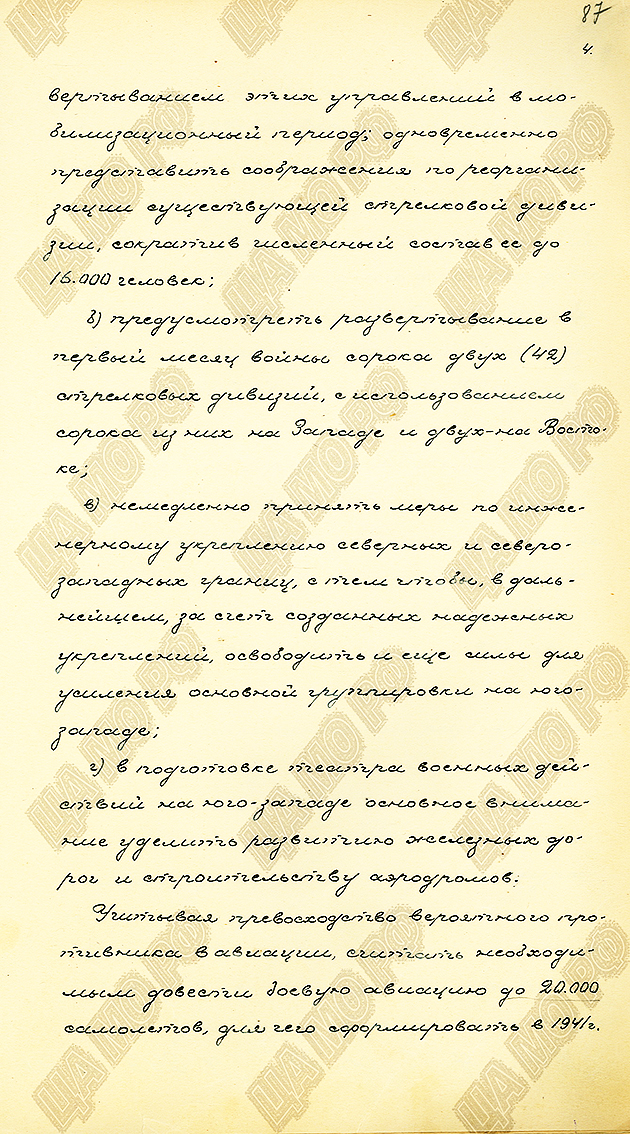 87
4.
вертыванием этих управлений в мо-
билизационный период; одновременно
представить соображения по реоргани-
зации существующей стрелковой диви-
зии, сократив численный состав ее до
16.000 человек;
б) предусмотреть развертывание в
первый месяц войны сорока двух (42)
стрелковых дивизий, с использованием
сорока из них на Западе и двух-на Восто-
ке;
в) немедленно принять меры по инже-
нерному укреплению северных и северо-
западных границ, с тем чтобы, в даль-
нейшем, за счет созданных надежных
укреплений, освободить и еще силы для
усиления основной группировки на юго-
западе;
г) в подготовке театра военных дей-
ствий на юго-западе основное внима-
ние уделить развитию железных до-
рог и строительству аэродромов.
Учитывая превосходство вероятного про-
тивника в авиации, считать необходи-
мым довести боевую авиацию до 20.000
самолетов, для чего сформировать в 1941г.
ЦА МО РФ
ЦА МО РФ
ЦА МО РФ
ЦА МО РФ
ЦА МО РФ
ЦА МО РФ
ЦА МО РФ
ЦА МО РФ
ЦА МО РФ
ЦА МО РФ
ЦА МО РФ
ЦА МО РФ